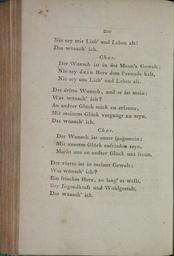 Nie sey mir Lieb' und Leben alt!
Das wünsch' ich.
Chor.
Der Wunsch ist in des Mann's Gewalt;
Nie sey dein Herz dem Freunde kalt,
Nie sey uns Lieb' und Leben alt.
Der dritte Wunsch, und er ist mein;
Was wünsch' ich?
An andrer Glück mich zu erfreun,
Mit meinem Glück vergnügt zu seyn,
Das wünsch' ich.
Chor.
Der Wunsch ist unser
Mit unserm Glück zufrieden seyn,
Macht uns an andrer Glück uns freun.
Der vierte ist in meiner Gewalt;
Was wünsch' ich?
Ein frisches Herz, so lang' es wallt,
Bey Jugendkraft und Wohlgestalt,
Das wünsch' ich.